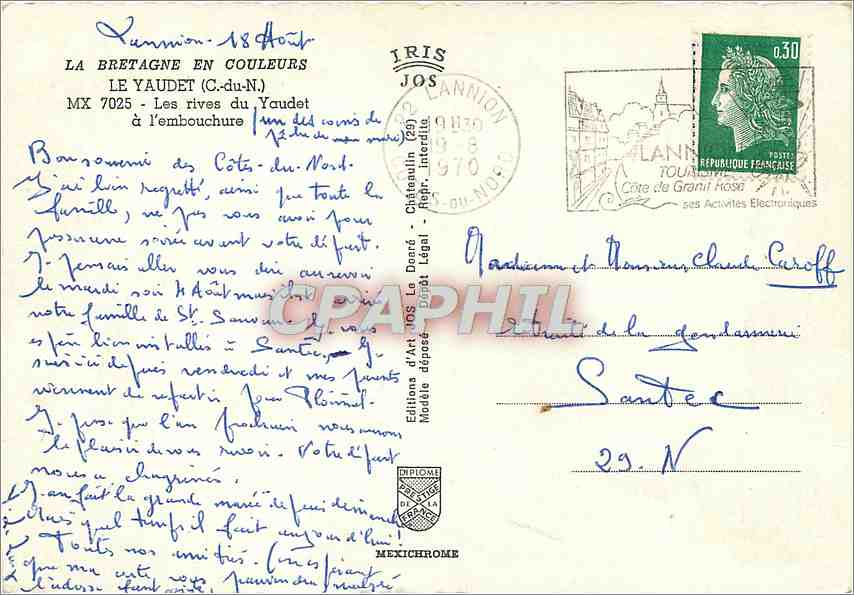 Lannion - 18 Août
LA BRETAGNE EN COULEURS
LE YAUDET (C.-du-N.)
MX 7025 - Les rives du Yaudet
à l'embouchure (un des coins de
pêche de mon mari)
Bon souvenir des Côtes-du-Nord.
J'ai bien regretté, ainsi que toute la
famille, ne pas vous avoir pour
une soirée avant votre départ.
Je pensais aller vous dire au revoir
le mardi soir 4 Août mais est arrivée
notre famille de St. Sauveur. vous
bien installés à Santec. Je
suis ici depuis vendredi et mes parents
viennent de repartir pour Ploërmel.
Je pense que l'an prochain nous aurons
le plaisir de vous revoir. Votre départ
nous a chagrinés.
fait la grande marée depuis dimanche
Mais quel temps il fait aujourd'hui !
Toutes nos amitiés. (en espérant
que ma carte vous parviendra malgré
l'adresse
IRIS
JOS
22 LANNION
19 H 30
19-8
1970
COTES-DU-NORD
LANNION
TOURISME
Côte de Granit Rose
ses Activités Electroniques
0,30
POSTES
REPUBLIQUE FRANÇAISE
Editions d'Art JOS Le Doaré - Châteaulin (29)
Modèle déposé - Dépôt Légal - Repr. Interdite
CPAPHIL
Madame et Monsieur Claude Caroff
retraité de la gendarmerie
Santec
29. N
DIPLOME
PRESTIGE
DE LA
FRANCE
MEXICHROME